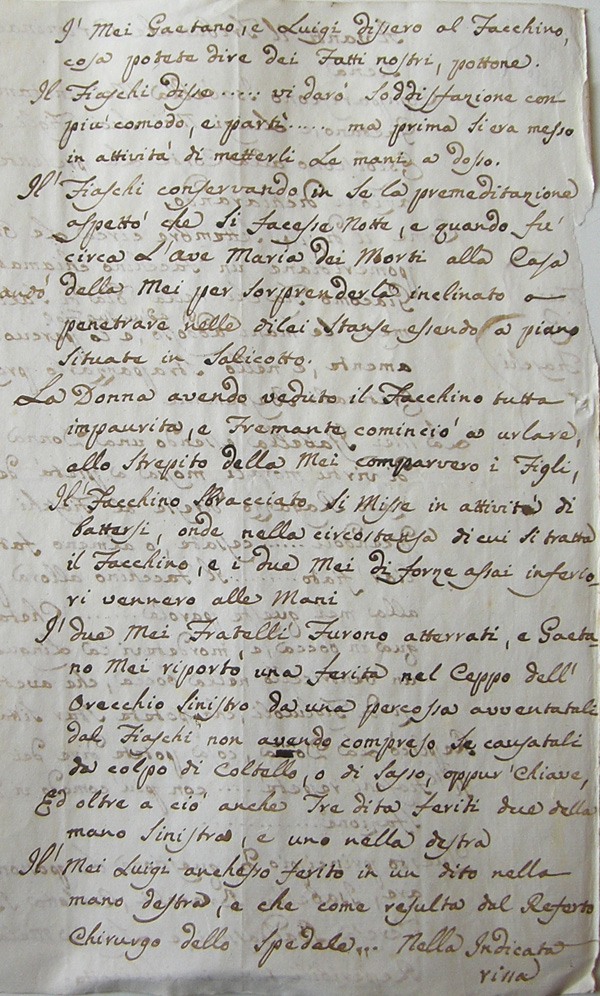 I' Mei Gaetano, e Luigi dissero al Facchino,
cosa potete dire dei Fatti nostri, pottone.
Il Fiaschi disse ...... vi daró soddisfazione con
piú comodo, e partì ..... ma prima si era messo
in attivitá di metterli Le mani a dosso.
Il' Fiaschi conservando in se la premeditazione
aspettó che si facesse Notte, e quando fú
circa L'Ave Maria dei Morti alla Casa
andó della Mei per sorprenderla inclinato a
penetrare nelle dilei stanse essendo a piano
situate in Salicotto.
La Donna avendo veduto il Facchino tutta
impaurita, e Tremante cominció a urlare,
allo strepito della Mei comparvero i Figli,
Il' Facchino sbracciato si Misse in attivitá di
battersi, onde nella circostansa di cui si tratta
il Facchino, e i due Mei di forze assai inferio-
ri vennero alle Mani
I' due Mei Fratelli Furono atterrati, e Gaeta-
no Mei riportó una ferita nel Ceppo dell'
Orecchio sinistro da una percossa avventatali
dal Fiaschi non avendo compreso se causatali
da colpo di Coltello, o di Sasso, oppur' Chiave,
Ed oltre a ció anche Tre dita feriti due della
mano sinistra, e uno nella destra
Il' Mei Luigi anchesso ferito in un dito nella
mano destra, e che come resulta dal Referto
Chirurgo dello Spedale ... Nella Indicata
rissa